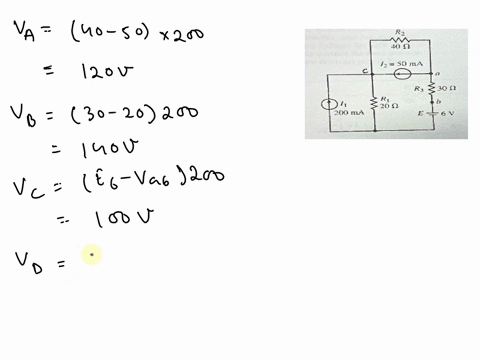 V_A = (40-50) × 200
= 120V
V_B = (30-20) 200
= 140V
V_C = (E6 - Va6) 200
= 100 V
V_D =
R₂
40 Ω
c
I₂ = 50 mA
a
R₃ 30 Ω
b
I₁
200 mA
R₁
20 Ω
E 6 V